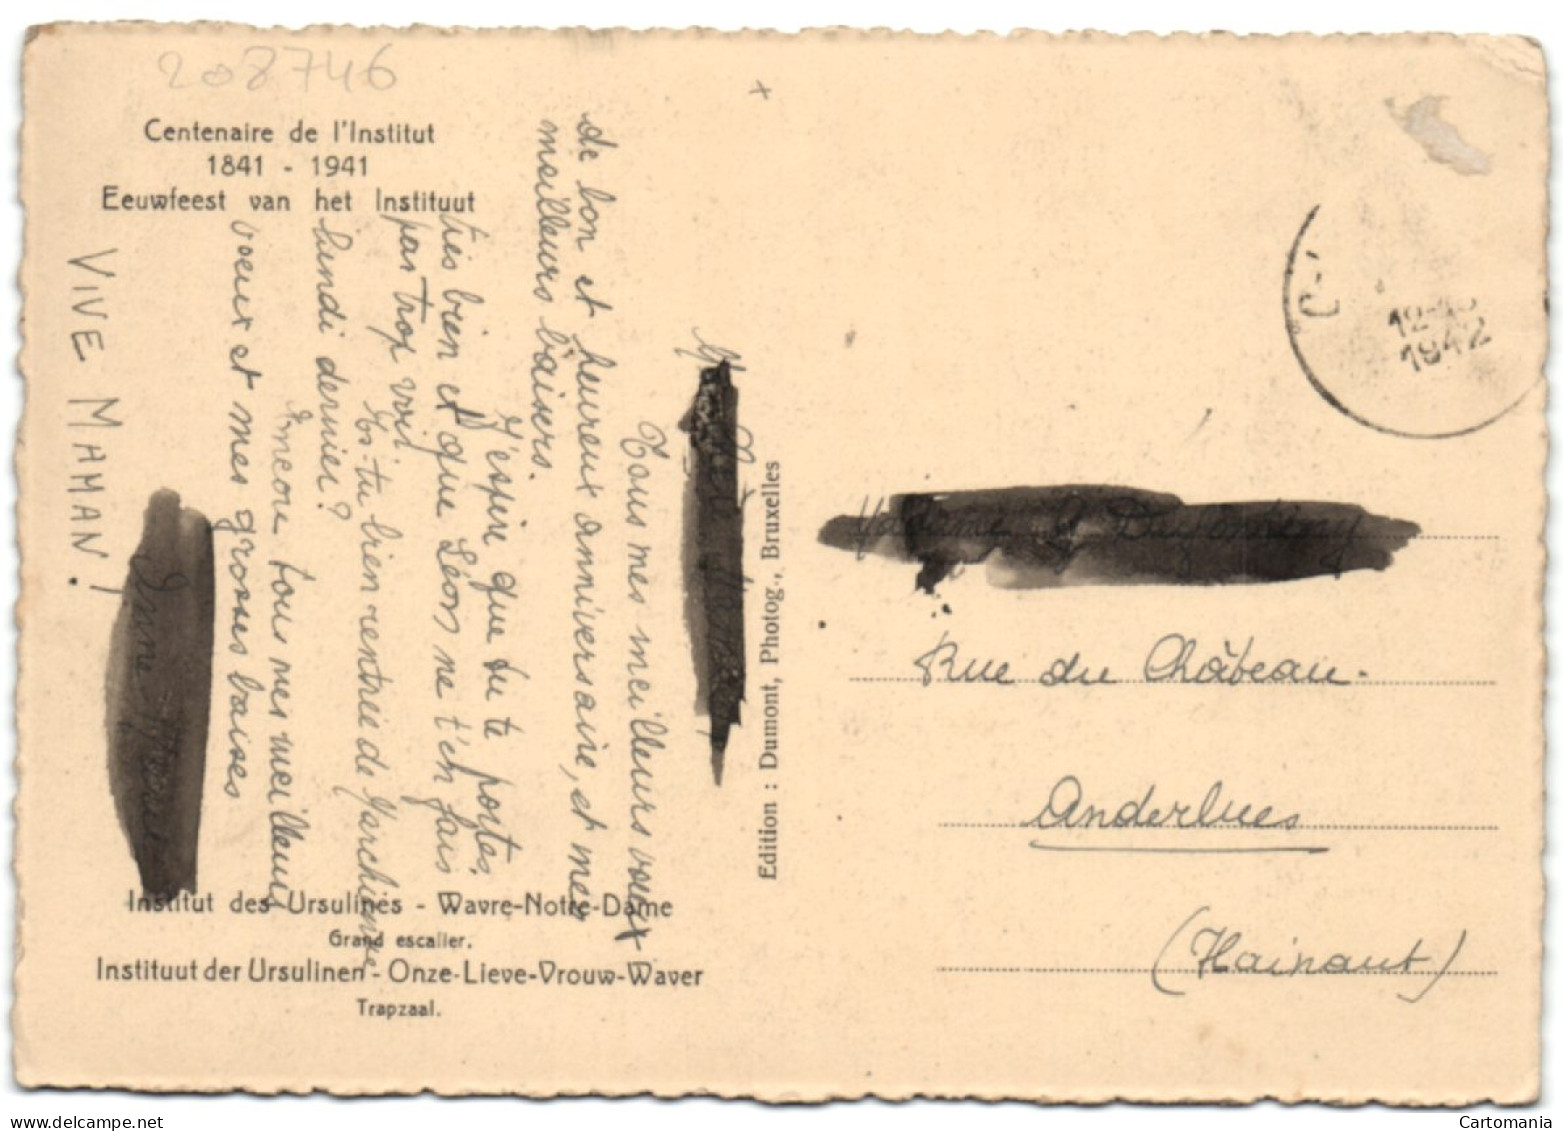 208746
Centenaire de l'Institut
1841 - 1941
Eeuwfeest van het Instituut
Tous mes meilleurs voeux
de bon et heureux anniversaire, et mes
meilleurs baisers.
J'espère que tu te portes
très bien et que Léon ne t'en fais
pas trop voir.
Es-tu bien rentrée de Marchienne
lundi dernier?
Encore tous mes meilleurs
voeux et mes grosses baises
VIVE MAMAN!
Institut des Ursulines - Wavre-Notre-Dame
Grand escalier.
Instituut der Ursulinen - Onze-Lieve-Vrouw-Waver
Trapzaal.
Edition : Dumont, Photog., Bruxelles
1942
Madame
Rue du Château.
Anderlues
(Hainaut)
www.delcampe.net
Cartomania